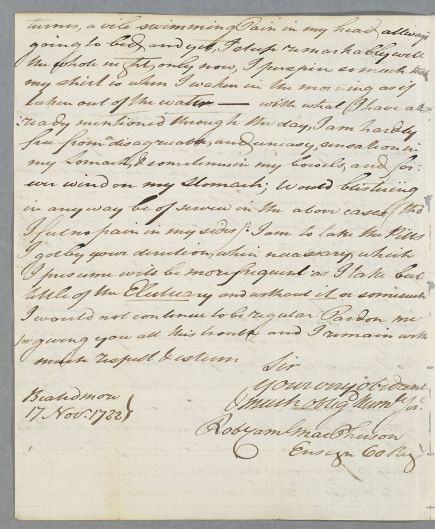 turns, a vile swimming Pain in my head allways
going to bed, and yet, I sleep remarkably well
the whole night, only now, I perspire so much that
my shirt is when I waken in the morning as if
taken out of the water — with what I have al-
:ready mentioned through the day, I am hardly
free from disagreable, and uneasy, sensation in
my Stomach, & sometimes in my bowels, and for-
wer wind on my Stomach; Would blistering
in any way be of service in the above cases, (tho
I feel no pain in my sides): I am to take the Pills
I got by your direction, when necessary, which
I presume will be more frequent as I take but
little of the Electuary and without it or some such
I would not continue to be regular. Pardon me
for giving you all this trouble and I remain with
much respect & esteem
Sir
Your very obedient
& much oblig'd Humb Ser.
Macpherson
Ensign 60 Reg
17 Nov. 1782